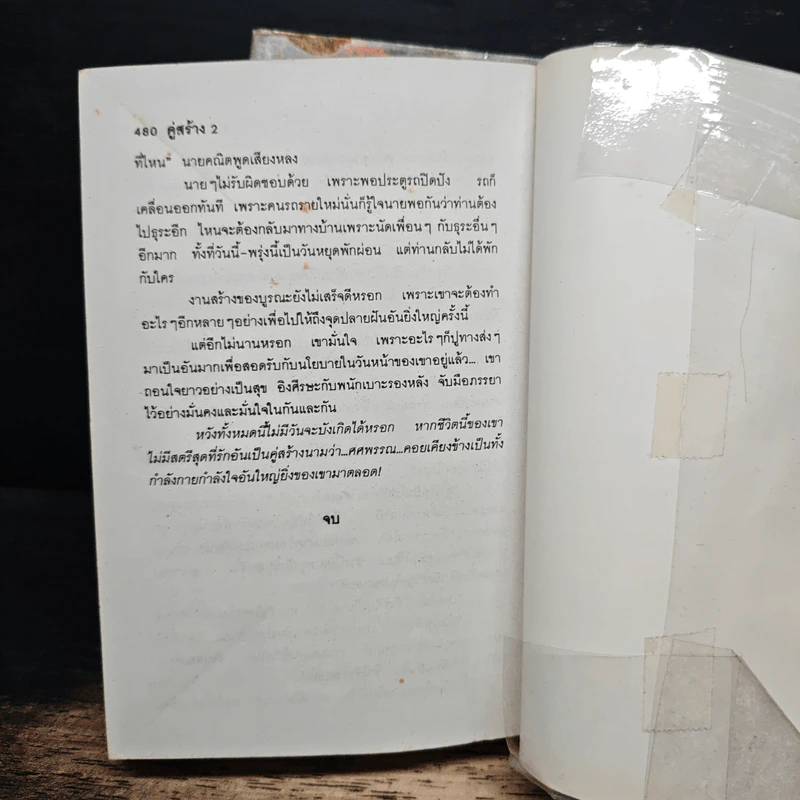 480 คู่สร้าง 2
ที่ไหน" นายคณิตพูดเสียงหลง
นายๆไม่รับผิดชอบด้วย เพราะพอประตูรถปิดปัง รถก็
เคลื่อนออกทันที เพราะคนรถรายใหม่นั่นก็รู้ใจนายพอกันว่าท่านต้อง
ไปธุระอีก ไหนจะต้องกลับมาทางบ้านเพราะนัดเพื่อนๆ กับธุระอื่นๆ
อีกมาก ทั้งที่วันนี้-พรุ่งนี้เป็นวันหยุดพักผ่อน แต่ท่านกลับไม่ได้พัก
กับใคร
งานสร้างของบูรณะยังไม่เสร็จดีหรอก เพราะเขาจะต้องทำ
อะไรๆอีกหลายๆอย่างเพื่อไปให้ถึงจุดปลายฝันอันยิ่งใหญ่ครั้งนี้
แต่อีกไม่นานหรอก เขามั่นใจ เพราะอะไรๆก็ปูทางส่งๆ
มาเป็นอันมากเพื่อสอดรับกับนโยบายในวันหน้าของเขาอยู่แล้ว... เขา
ถอนใจยาวอย่างเป็นสุข อิงศีรษะกับพนักเบาะรองหลัง จับมือภรรยา
ไว้อย่างมั่นคงและมั่นใจในกันและกัน
หวังทั้งหมดนี้ไม่มีวันจะบังเกิดได้หรอก หากชีวิตนี้ของเขา
ไม่มีสตรีสุดที่รักอันเป็นคู่สร้างนามว่า...ศศพรรณ...คอยเคียงข้างเป็นทั้ง
กำลังกายกำลังใจอันใหญ่ยิ่งของเขามาตลอด!
จบ